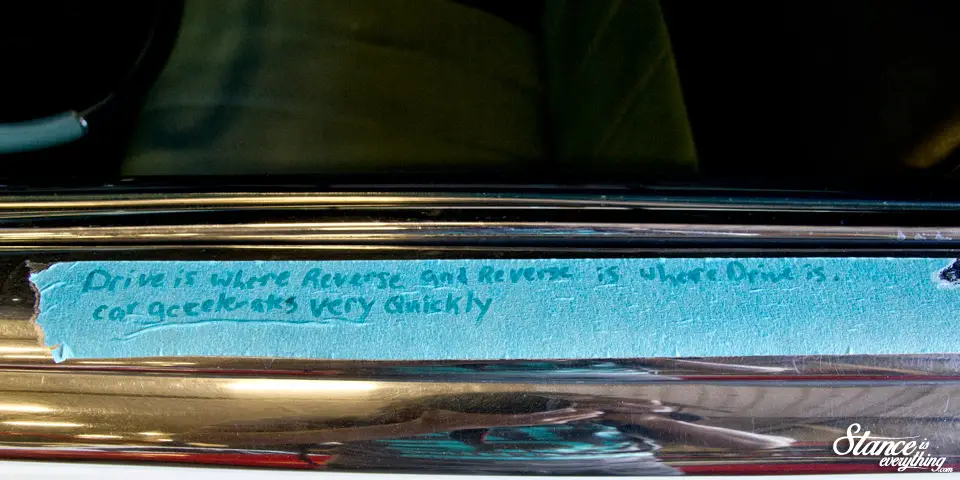 Drive is where Reverse and Reverse is where Drive is.
car accelerates very Quickly
Stance is
everything.com